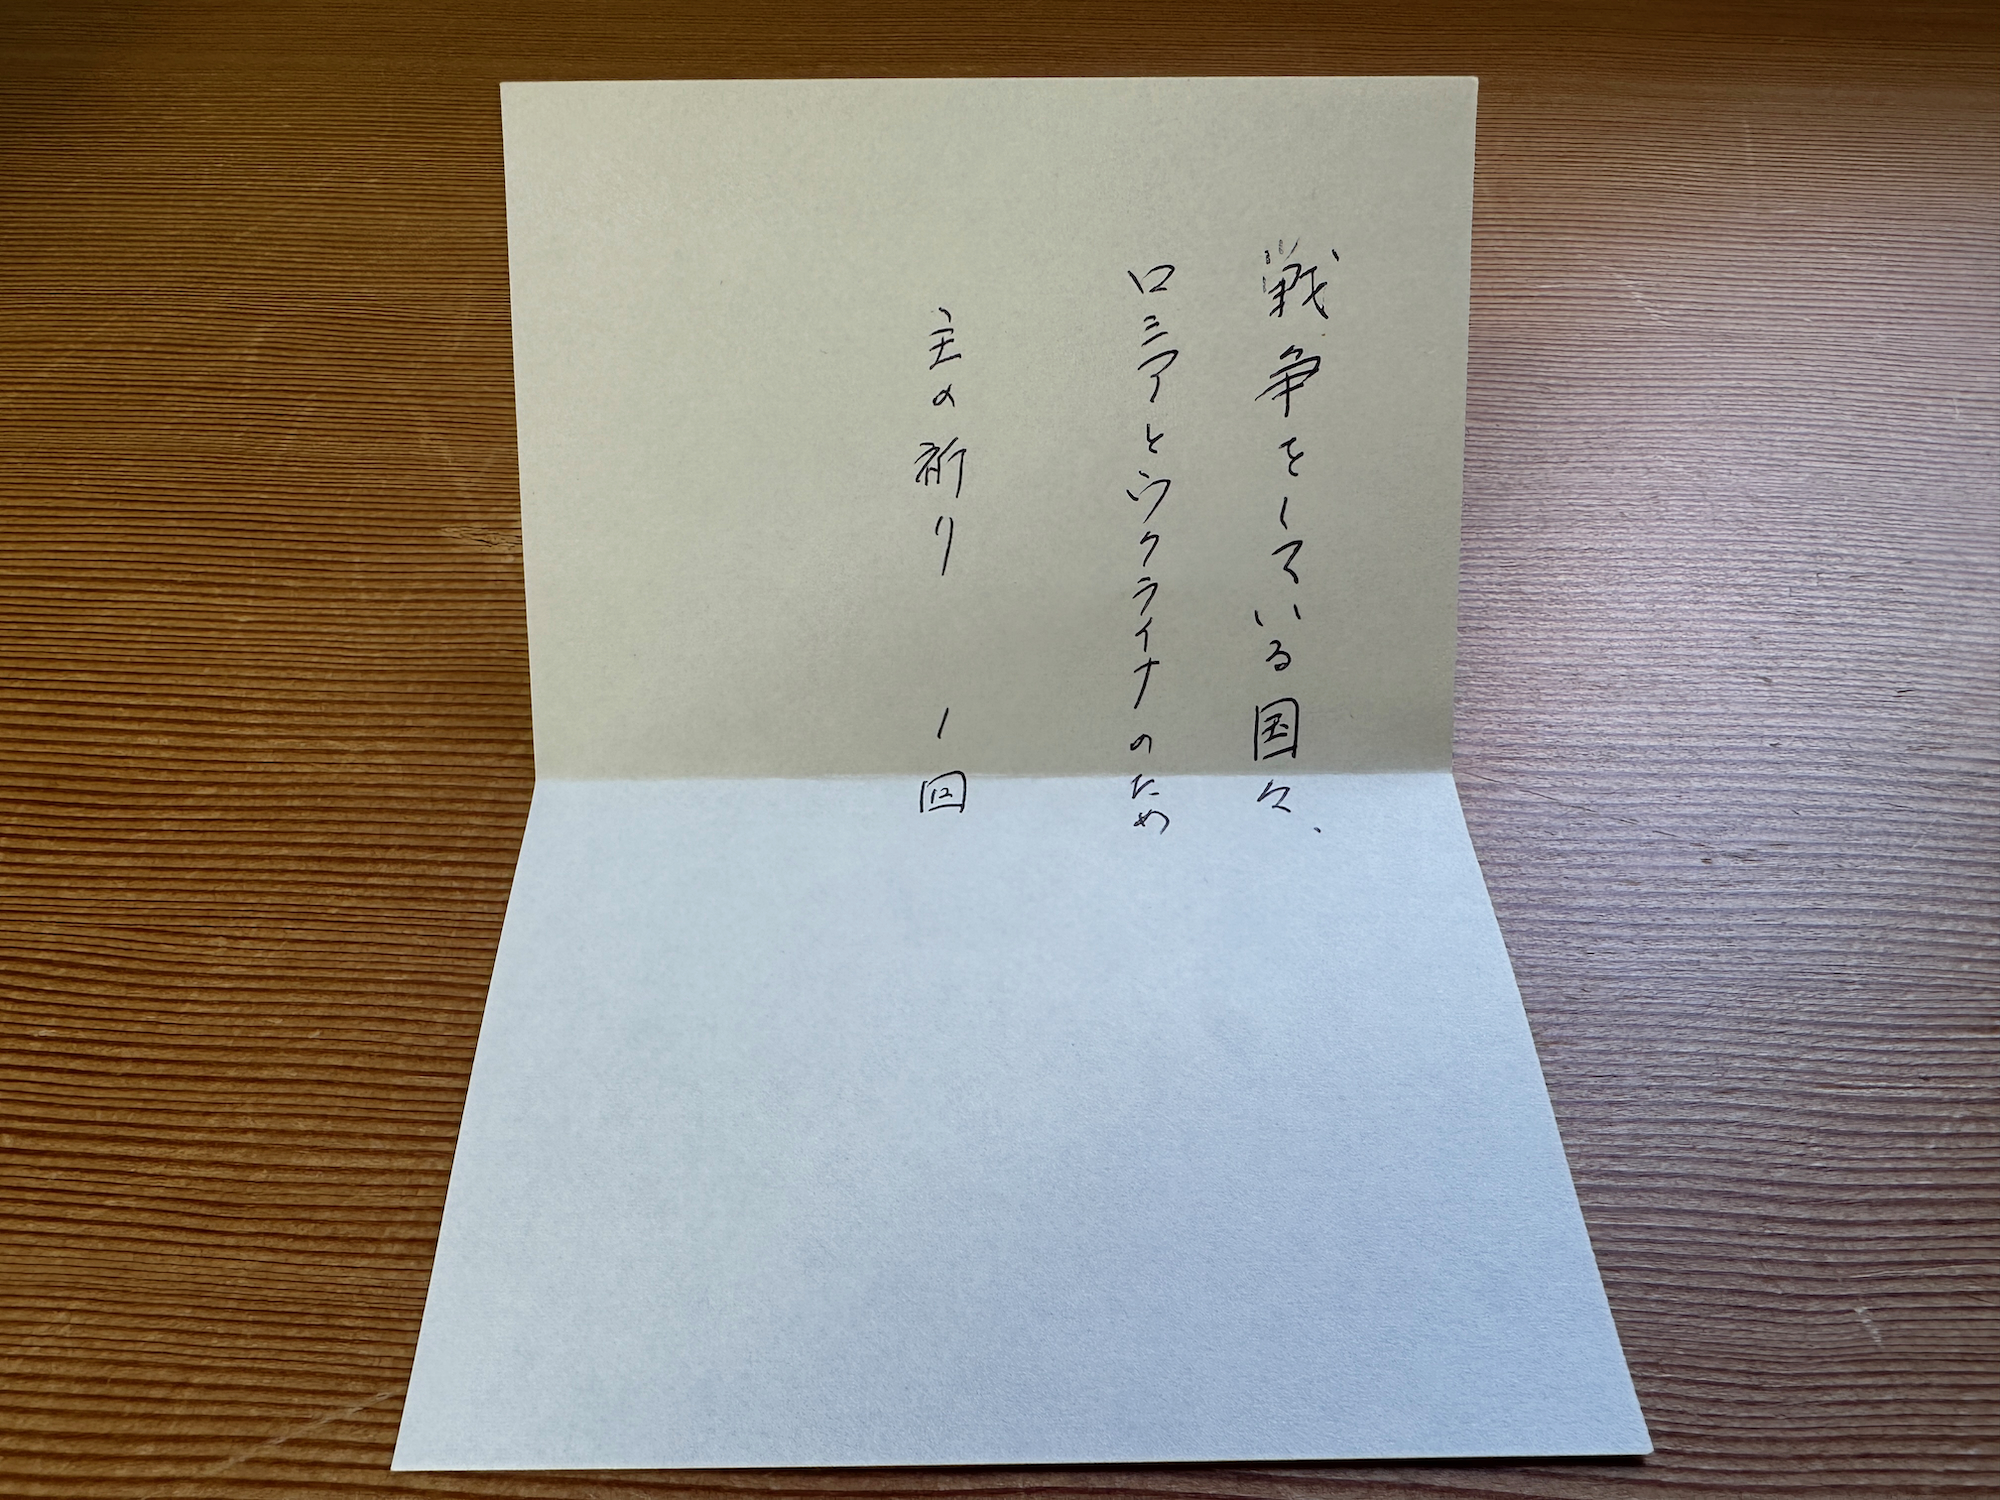 戦争をしている国々、
ロシアとウクライナのため
主の祈り 1回